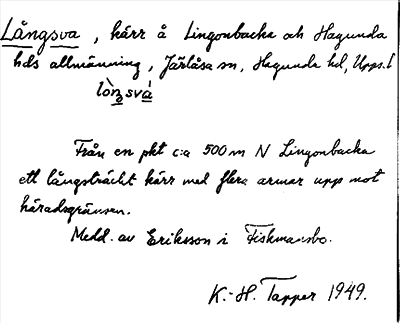 Långsva, kärr å Lingonbacka och Hagunda
hds allmänning, Järlåsa sn, Hagunda hd, Upps. l
lòŋsvá
Från en pkt c:a 500 m N Lingonbacka
ett långsträckt kärr med flera armar upp mot
häradsgränsen.
Medd. av Eriksson i Fiskmansbo.
K.-H. Tapper 1949.